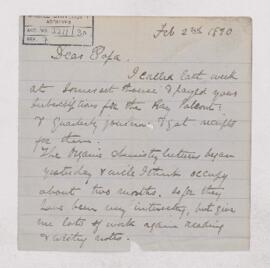 ARCHIVES
Feb 2nd 1890
Dear Papa.
I called last week
at Somerset House & payed your
subscriptions for the Ray
& Quarterly journal & got receipts
for them:
The Organic Chemistry lectures began
yesterday & will I think occupy
about two months. So far they
have been very interesting, but give
me lots of work again reading
& writing notes.